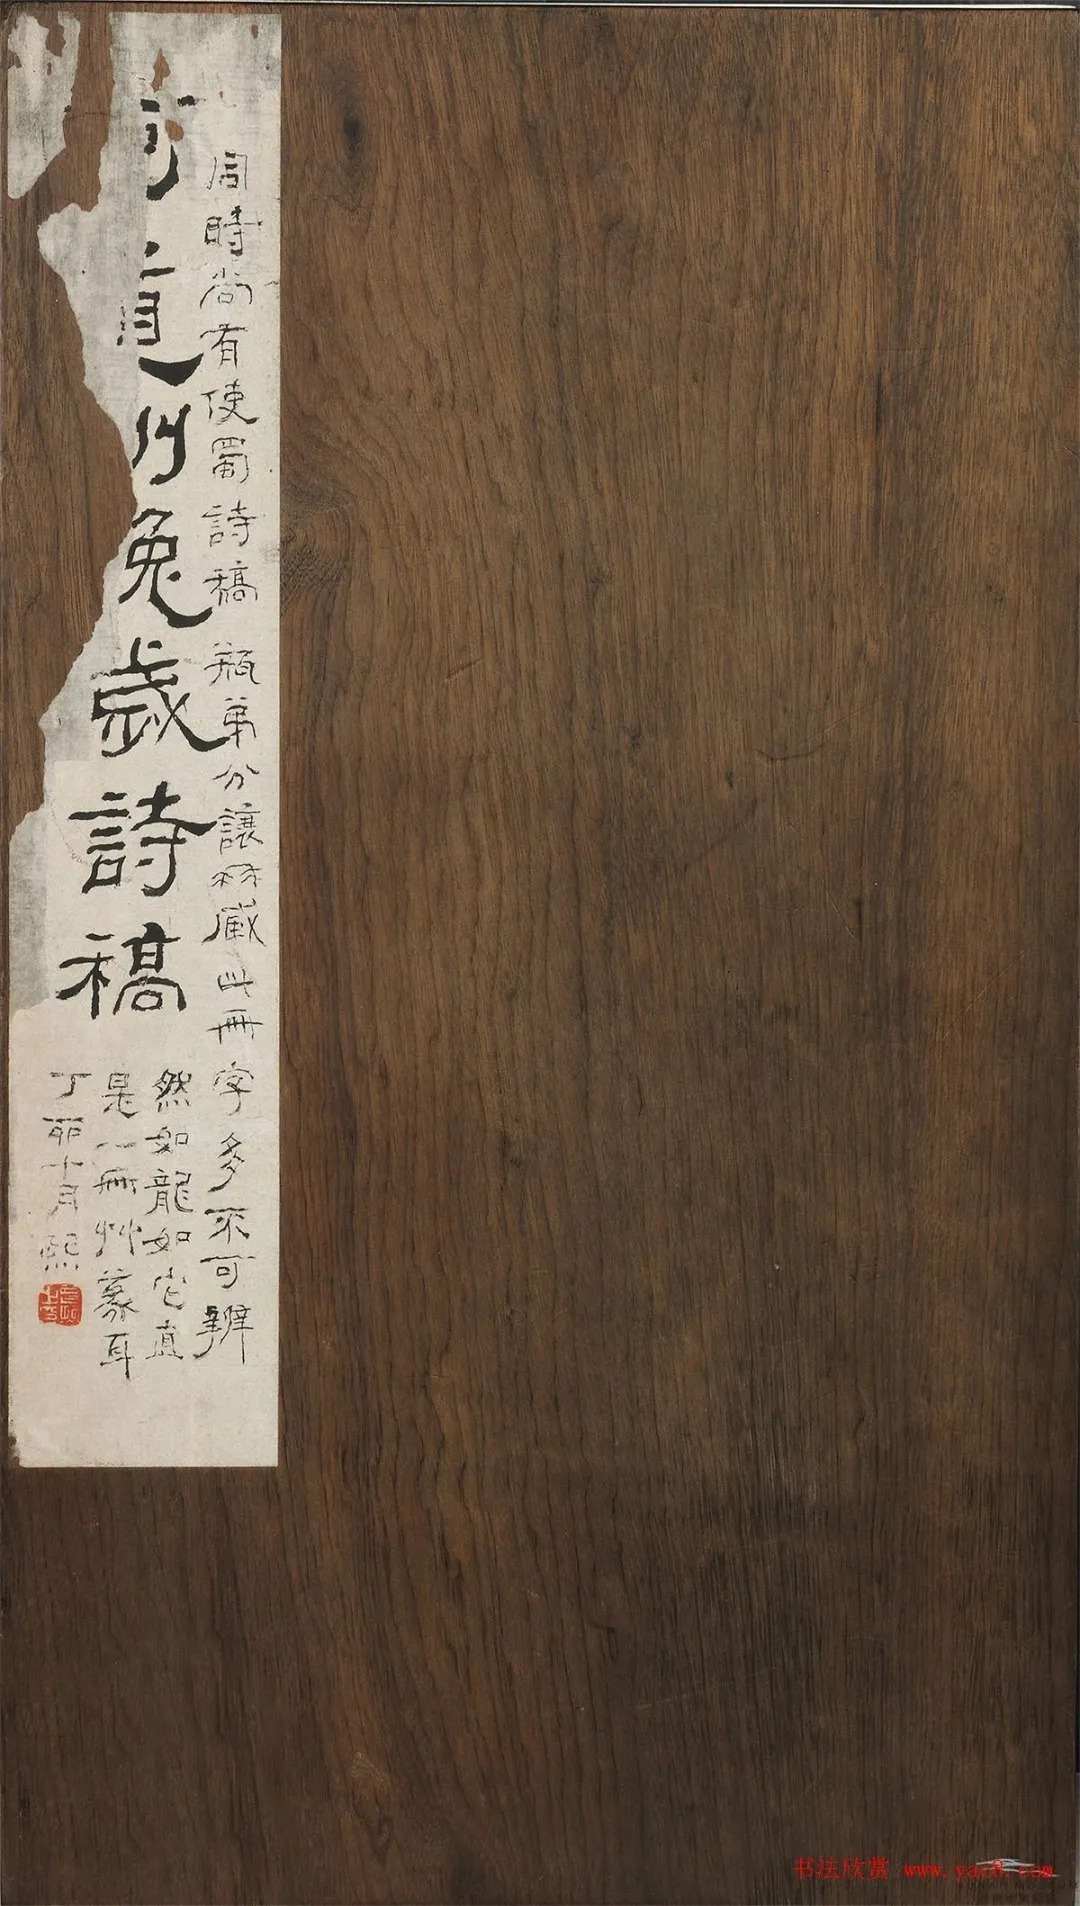 同時尚有使蜀詩稿瓶弟分讓藏此冊字多不可辨
何道州兔歲詩稿
然如龍如它直
是一冊艸篆耳
丁卯十月熙
书法欣赏 www.yac8.com